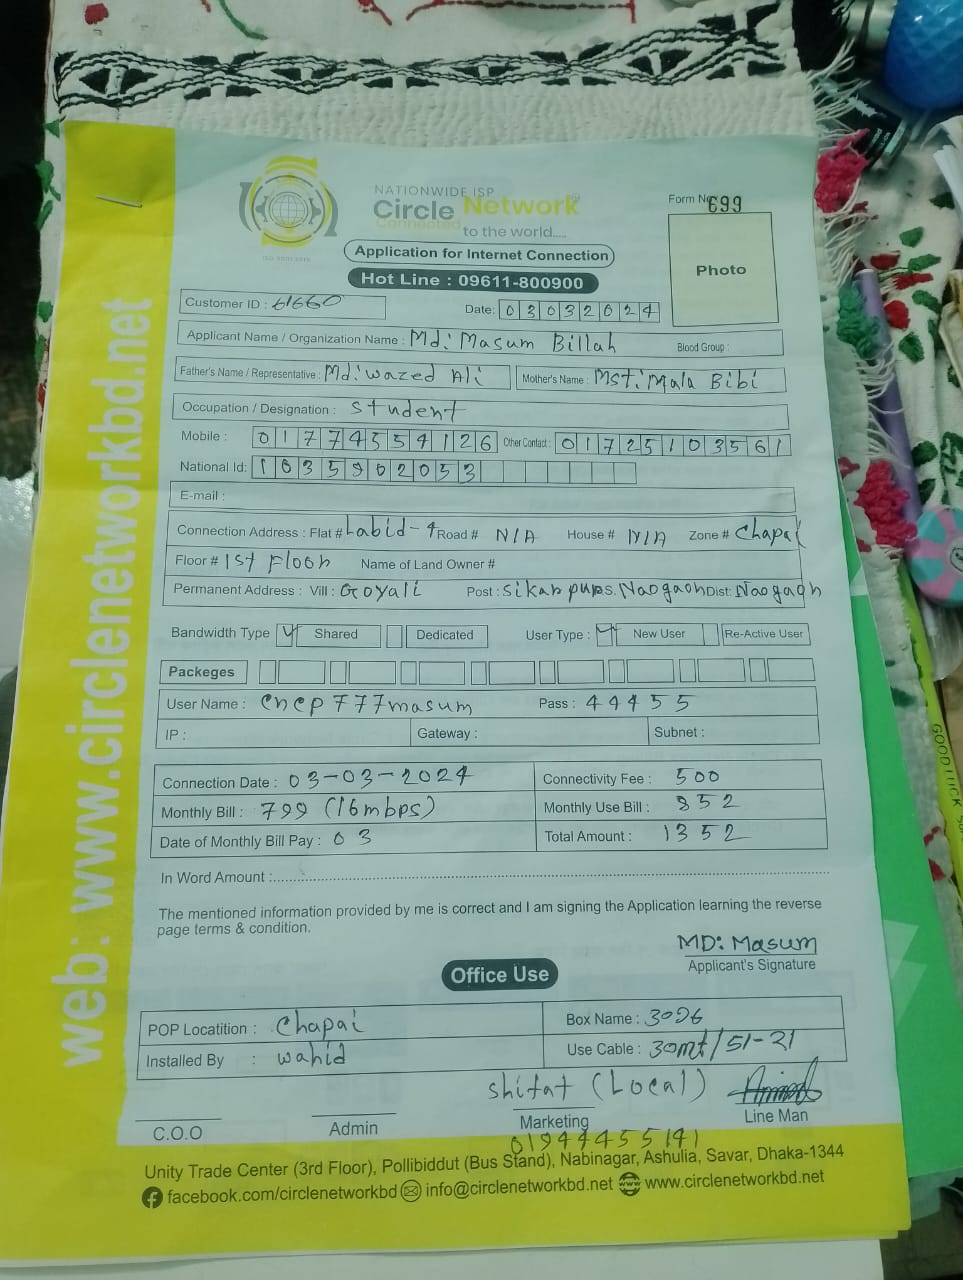 NATIONWIDE ISP
Circle Network
Connected to the world.....
ISO 9001:2015
Form No 699
Application for Internet Connection
Hot Line : 09611-800900
Photo
Customer ID : 61660
Date: 03032024
Applicant Name / Organization Name : Md: Masum Billah Blood Group :
Father's Name / Representative : Md: Wazed Ali Mother's Name : Mst: Mala Bibi
Occupation / Designation : Student
Mobile : 01774554126 Other Contact : 01725103561
National Id: 1035902053
E-mail :
Connection Address : Flat # Labid-4 Road # N/A House # N/A Zone # Chapai
Floor # 1st Floor Name of Land Owner #
Permanent Address : Vill : Goyali Post : Sikarpur P.S. Naogaon Dist: Naogaon
Bandwidth Type Shared Dedicated User Type : New User Re-Active User
Packeges
User Name : cncp777masum Pass : 44455
IP : Gateway : Subnet :
Connection Date : 03-03-2024 Connectivity Fee : 500
Monthly Bill : 799 (16mbps) Monthly Use Bill : 852
Date of Monthly Bill Pay : 03 Total Amount : 1352
In Word Amount :
The mentioned information provided by me is correct and I am signing the Application learning the reverse
page terms & condition.
MD: Masum
Applicant's Signature
Office Use
POP Locatition : Chapai Box Name : 3026
Installed By : wahid Use Cable : 30mt/51-21
shifat (Local)
C.O.O Admin Marketing Line Man
01944455141
Unity Trade Center (3rd Floor), Pollibiddut (Bus Stand), Nabinagar, Ashulia, Savar, Dhaka-1344
facebook.com/circlenetworkbd info@circlenetworkbd.net www.circlenetworkbd.net
web: www.circlenetworkbd.net
GOOD LUCK